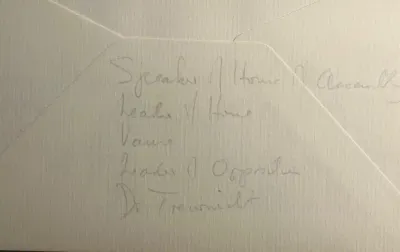 Speaker of House of Assembly
Leader of House
Leader of Opposition
Dr Treurnicht